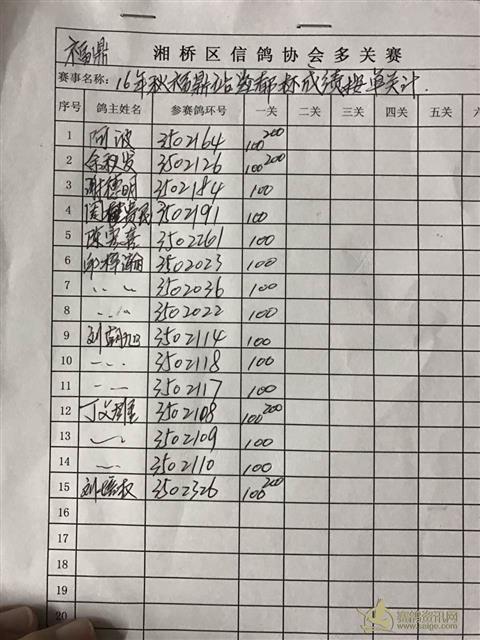 福鼎 湘桥区信鸽协会多关赛
赛事名称: 16年秋福鼎站 成绩按单关计.
序号 鸽主姓名 参赛鸽环号 一关 二关 三关 四关 五关 六
1 阿波 3502164 100 200
2 余秋发 3502126 100 200
3 谢德明 3502184 100
4 3502191 100
5 陈 3502261 100
6 3502023 100
7 〃 3502036 100
8 〃 3502022 100
9 刘朝旭 3502114 100
10 〃 3502118 100
11 〃 3502117 100
12 丁文雄 3502108 100 200
13 〃 3502109 100
14 〃 3502110 100
15 刘 权 3502326 100 200
16
17
18
19
20
赛鸽资讯网
www.saige.com